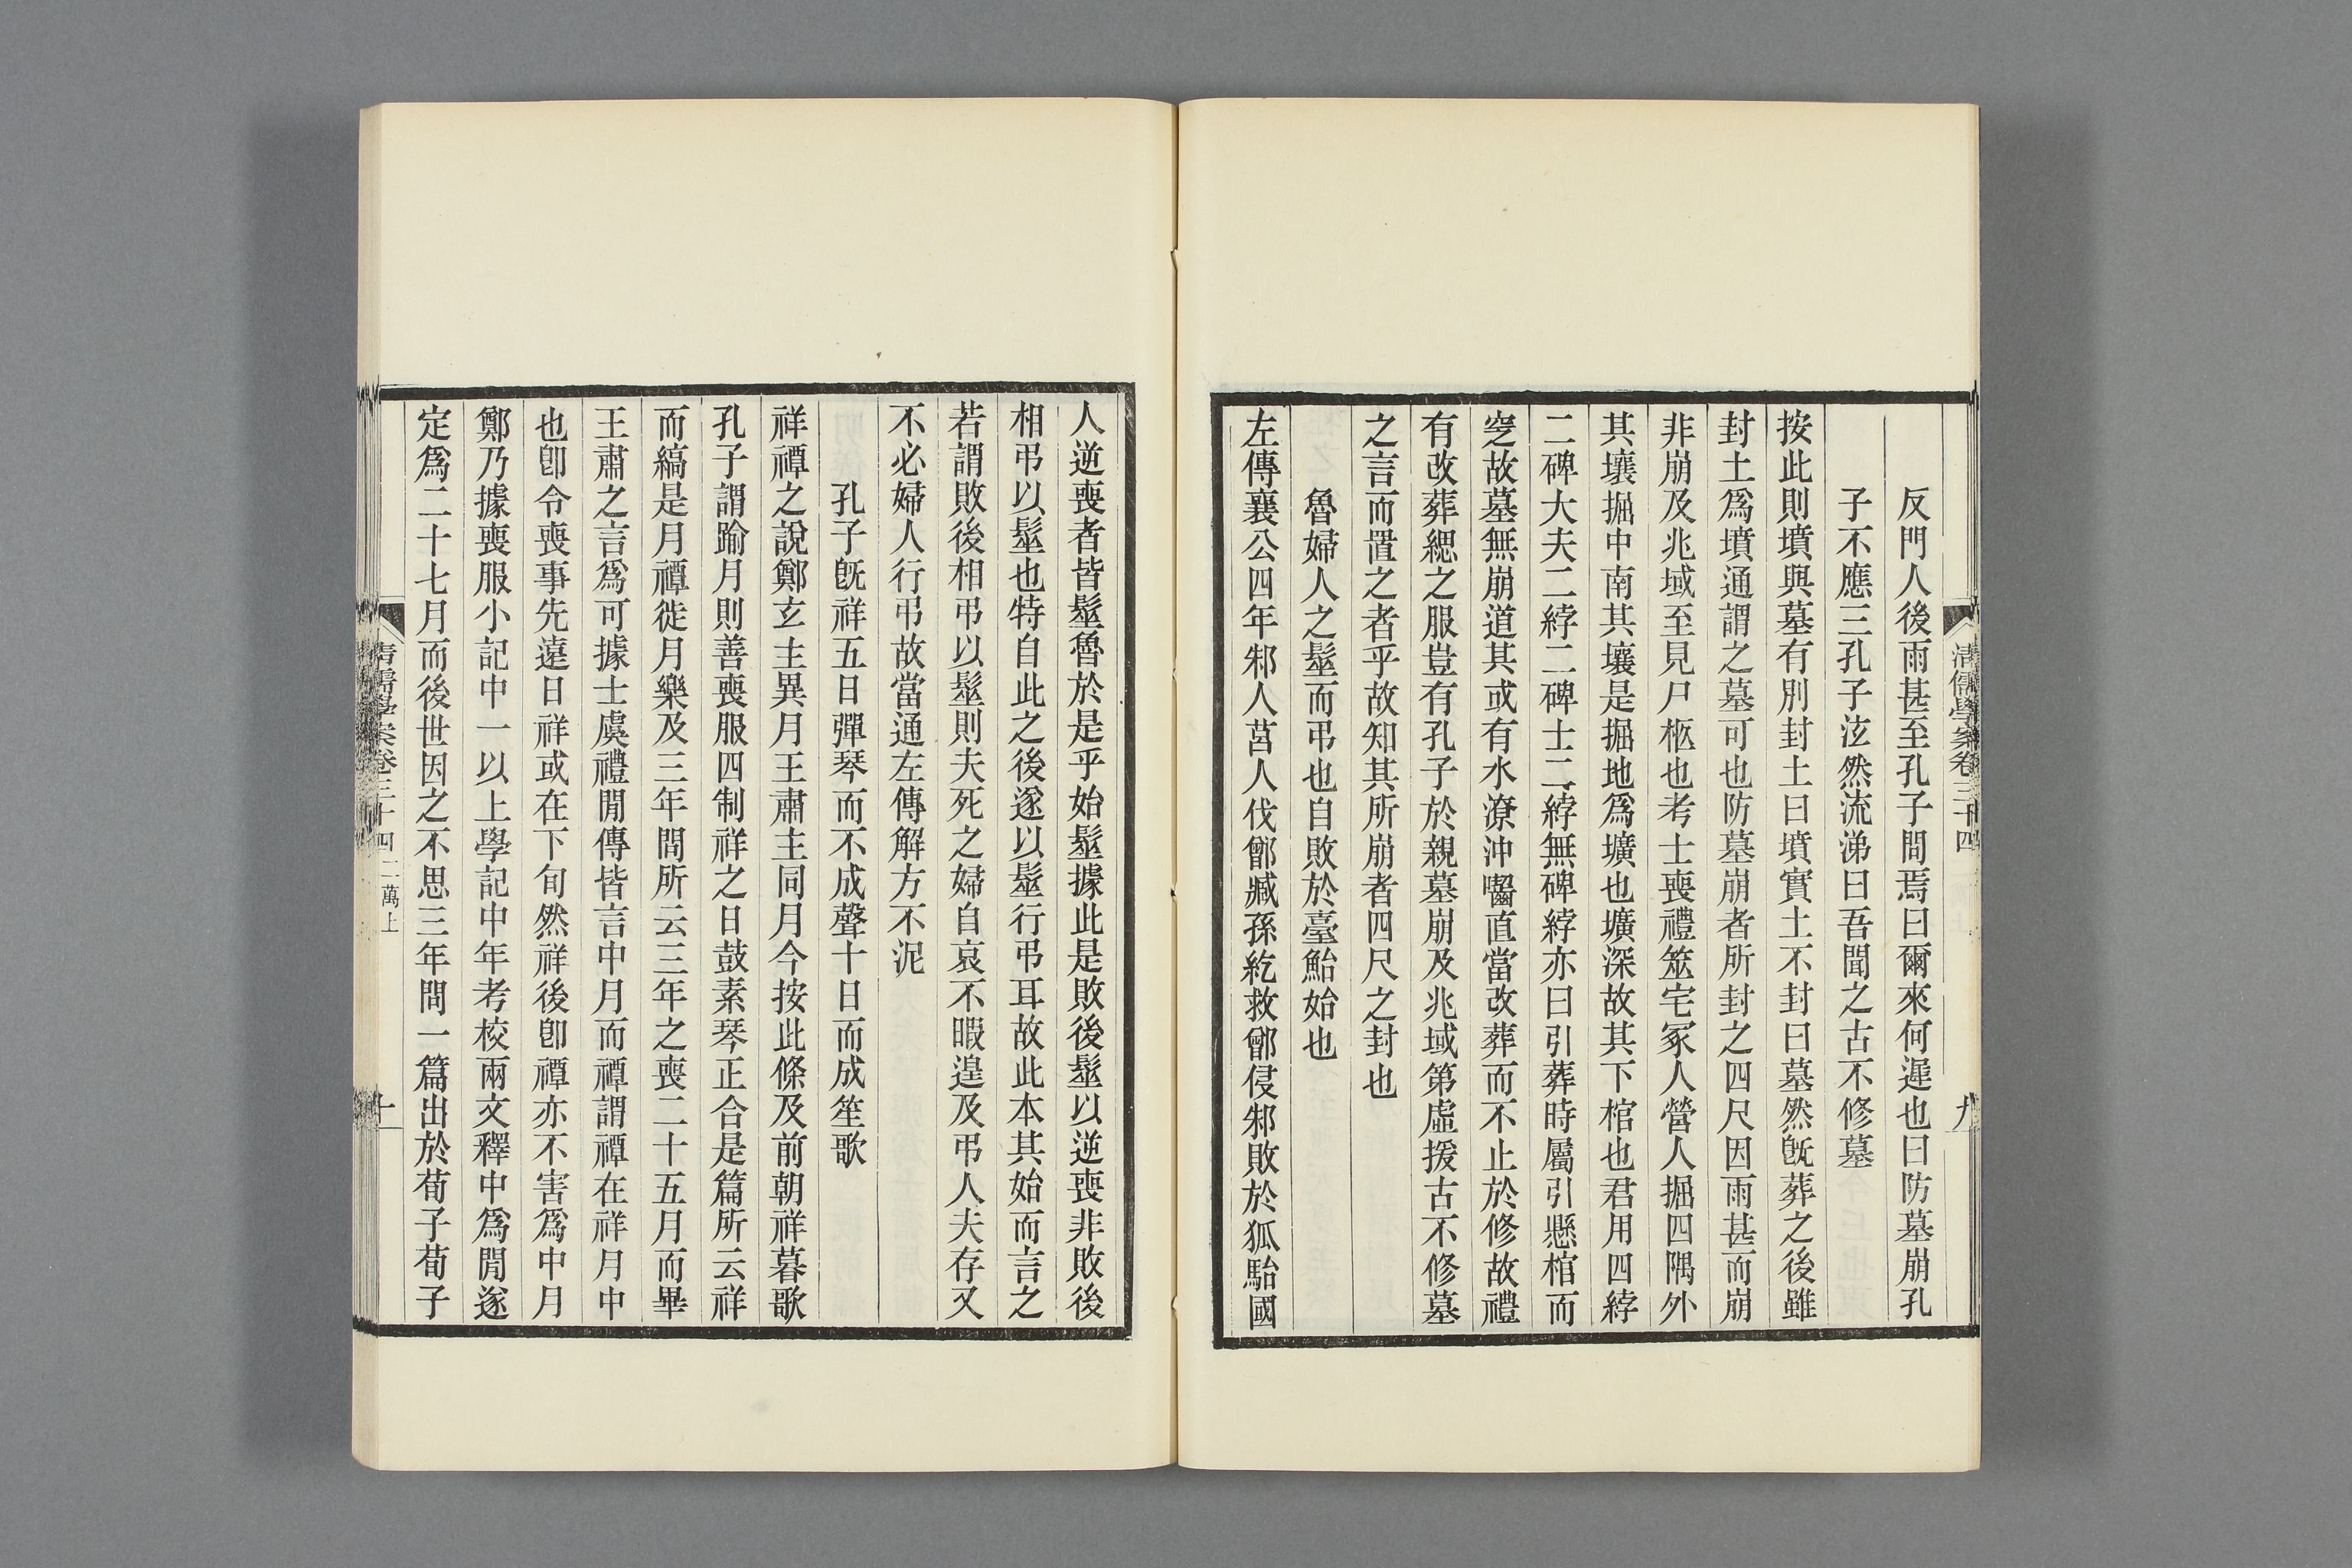 清儒學案卷三十四
九
反門人後雨甚至孔子問焉曰爾來何遲也曰防墓崩孔
子不應三孔子泫然流涕曰吾聞之古不修墓
按此則墳與墓有別封土曰墳實土不封曰墓然旣葬之後雖
封土爲墳通謂之墓可也防墓崩者所封之四尺因雨甚而崩
非崩及兆域至見尸柩也考士喪禮筮宅冢人營人掘四隅外
其壤掘中南其壤是掘地爲壙也壙深故其下棺也君用四綍
二碑大夫二綍二碑士二綍無碑綍亦曰引葬時屬引懸棺而
窆故墓無崩道其或有水潦沖齧直當改葬而不止於修故禮
有改葬緦之服豈有孔子於親墓崩及兆域第虛援古不修墓
之言而置之者乎故知其所崩者四尺之封也
魯婦人之髽而弔也自敗於臺鮐始也
左傳襄公四年邾人莒人伐鄫臧孫紇救鄫侵邾敗於狐駘國
人逆喪者皆髽魯於是乎始髽據此是敗後髽以逆喪非敗後
相弔以髽也特自此之後遂以髽行弔耳故此本其始而言之
若謂敗後相弔以髽則夫死之婦自哀不暇遑及弔人夫存又
不必婦人行弔故當通左傳解方不泥
孔子旣祥五日彈琴而不成聲十日而成笙歌
祥禫之說鄭玄主異月王肅主同月今按此條及前朝祥暮歌
孔子謂踰月則善喪服四制祥之日鼓素琴正合是篇所云祥
而縞是月禫徙月樂及三年問所云三年之喪二十五月而畢
王肅之言爲可據士虞禮閒傳皆言中月而禫謂禫在祥月中
也卽令喪事先遠日祥或在下旬然祥後卽禫亦不害爲中月
鄭乃據喪服小記中一以上學記中年考校兩文釋中爲閒遂
定爲二十七月而後世因之不思三年問一篇出於荀子荀子
清儒學案卷三十四
二萬上
十